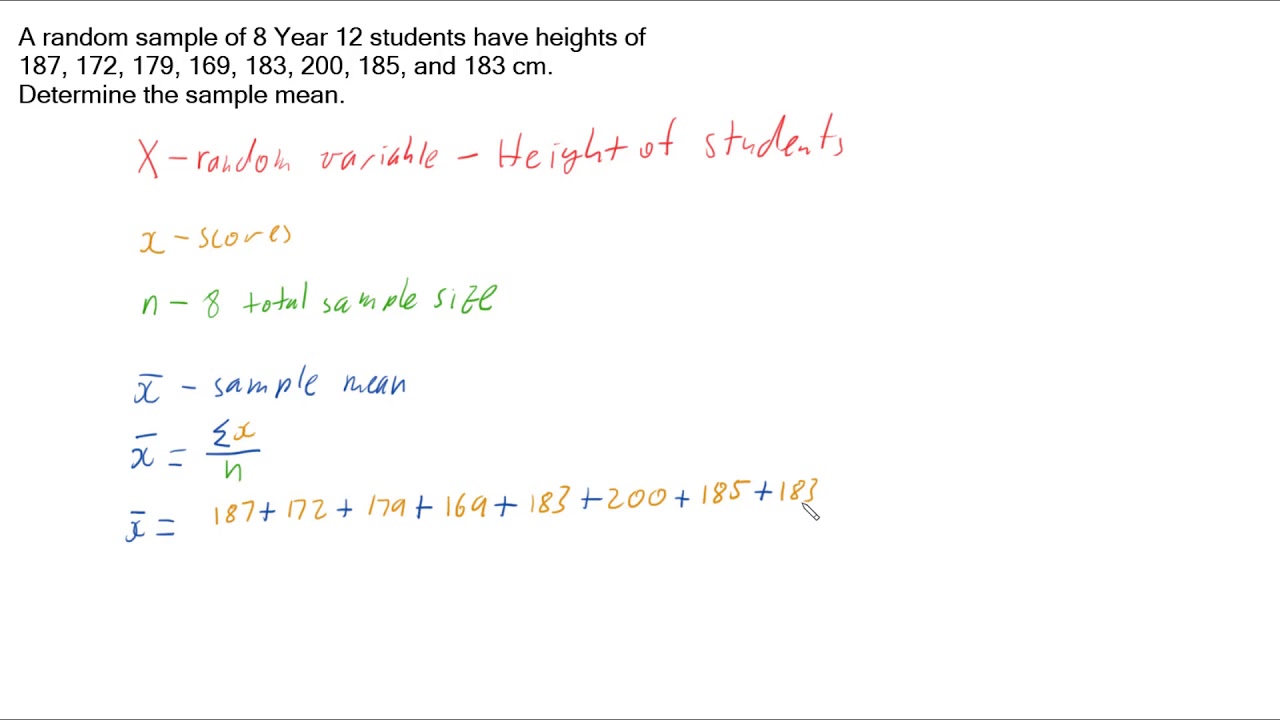 A random sample of 8 Year 12 students have heights of
187, 172, 179, 169, 183, 200, 185, and 183 cm.
Determine the sample mean.
X - random variable - Height of students
x - scores
n - 8 total sample size
x̄ - sample mean
x̄ = Σx / n
x̄ = 187 + 172 + 179 + 169 + 183 + 200 + 185 + 183